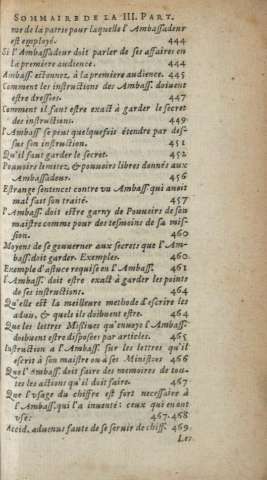 SOMMAIRE DE LA III. PART.
me de la patrie pour laquelle l'Ambassadeur
est employé. 444
Si l'Ambassadeur doit parler de ses affaires en
la premiere audience. 444
Ambass. estonnez, à la premiere audience. 445
Comment les instructions des Ambass. doiuent
estre dressees. 447
Comment il faut estre exact à garder le secret
des instructions. 449
l'Ambass se peut quelquefois étendre par des-
sus son instruction. 451
Qu'il faut garder le secret. 452
Pouuoirs limitez, & pouuoirs libres donnés aux
Ambassadeur. 456
Estrange sentence contre vn Ambass qui auoit
mal fait son traité. 457
l'Ambass. doit estre garny de Pouuoirs de son
maistre comme pour des tesmoins de sa mis-
sion. 460
Moyens de se gouuerner aux secrets que l'Am-
bass. doit garder. Exemples. 460
Exemple d'astuce requise en l'Ambass. 461
l'Ambass. doit estre exact à garder les points
de ses instructions. 464
Qu'elle est la meilleure methode d'escrire les
aduis, & quels ils doibuent estre. 464
Que les lettres Missiues qu'enuoye l'Ambass.
doibuent estre disposees par articles. 465
Instruction a l'Ambass. sur les lettres qu'il
escrit à son maistre ou à ses Ministres 466
Que l'Ambass. doit faire des memoires de tou-
tes les actions qu'il doit faire. 467
Que l'vsage du chiffre est fort necessaire à
l'Ambass. qui l'a inuenté: ceux qui en ont
vsé: 467.468
Accid. aduenus faute de se seruir de chiff. 469
Les